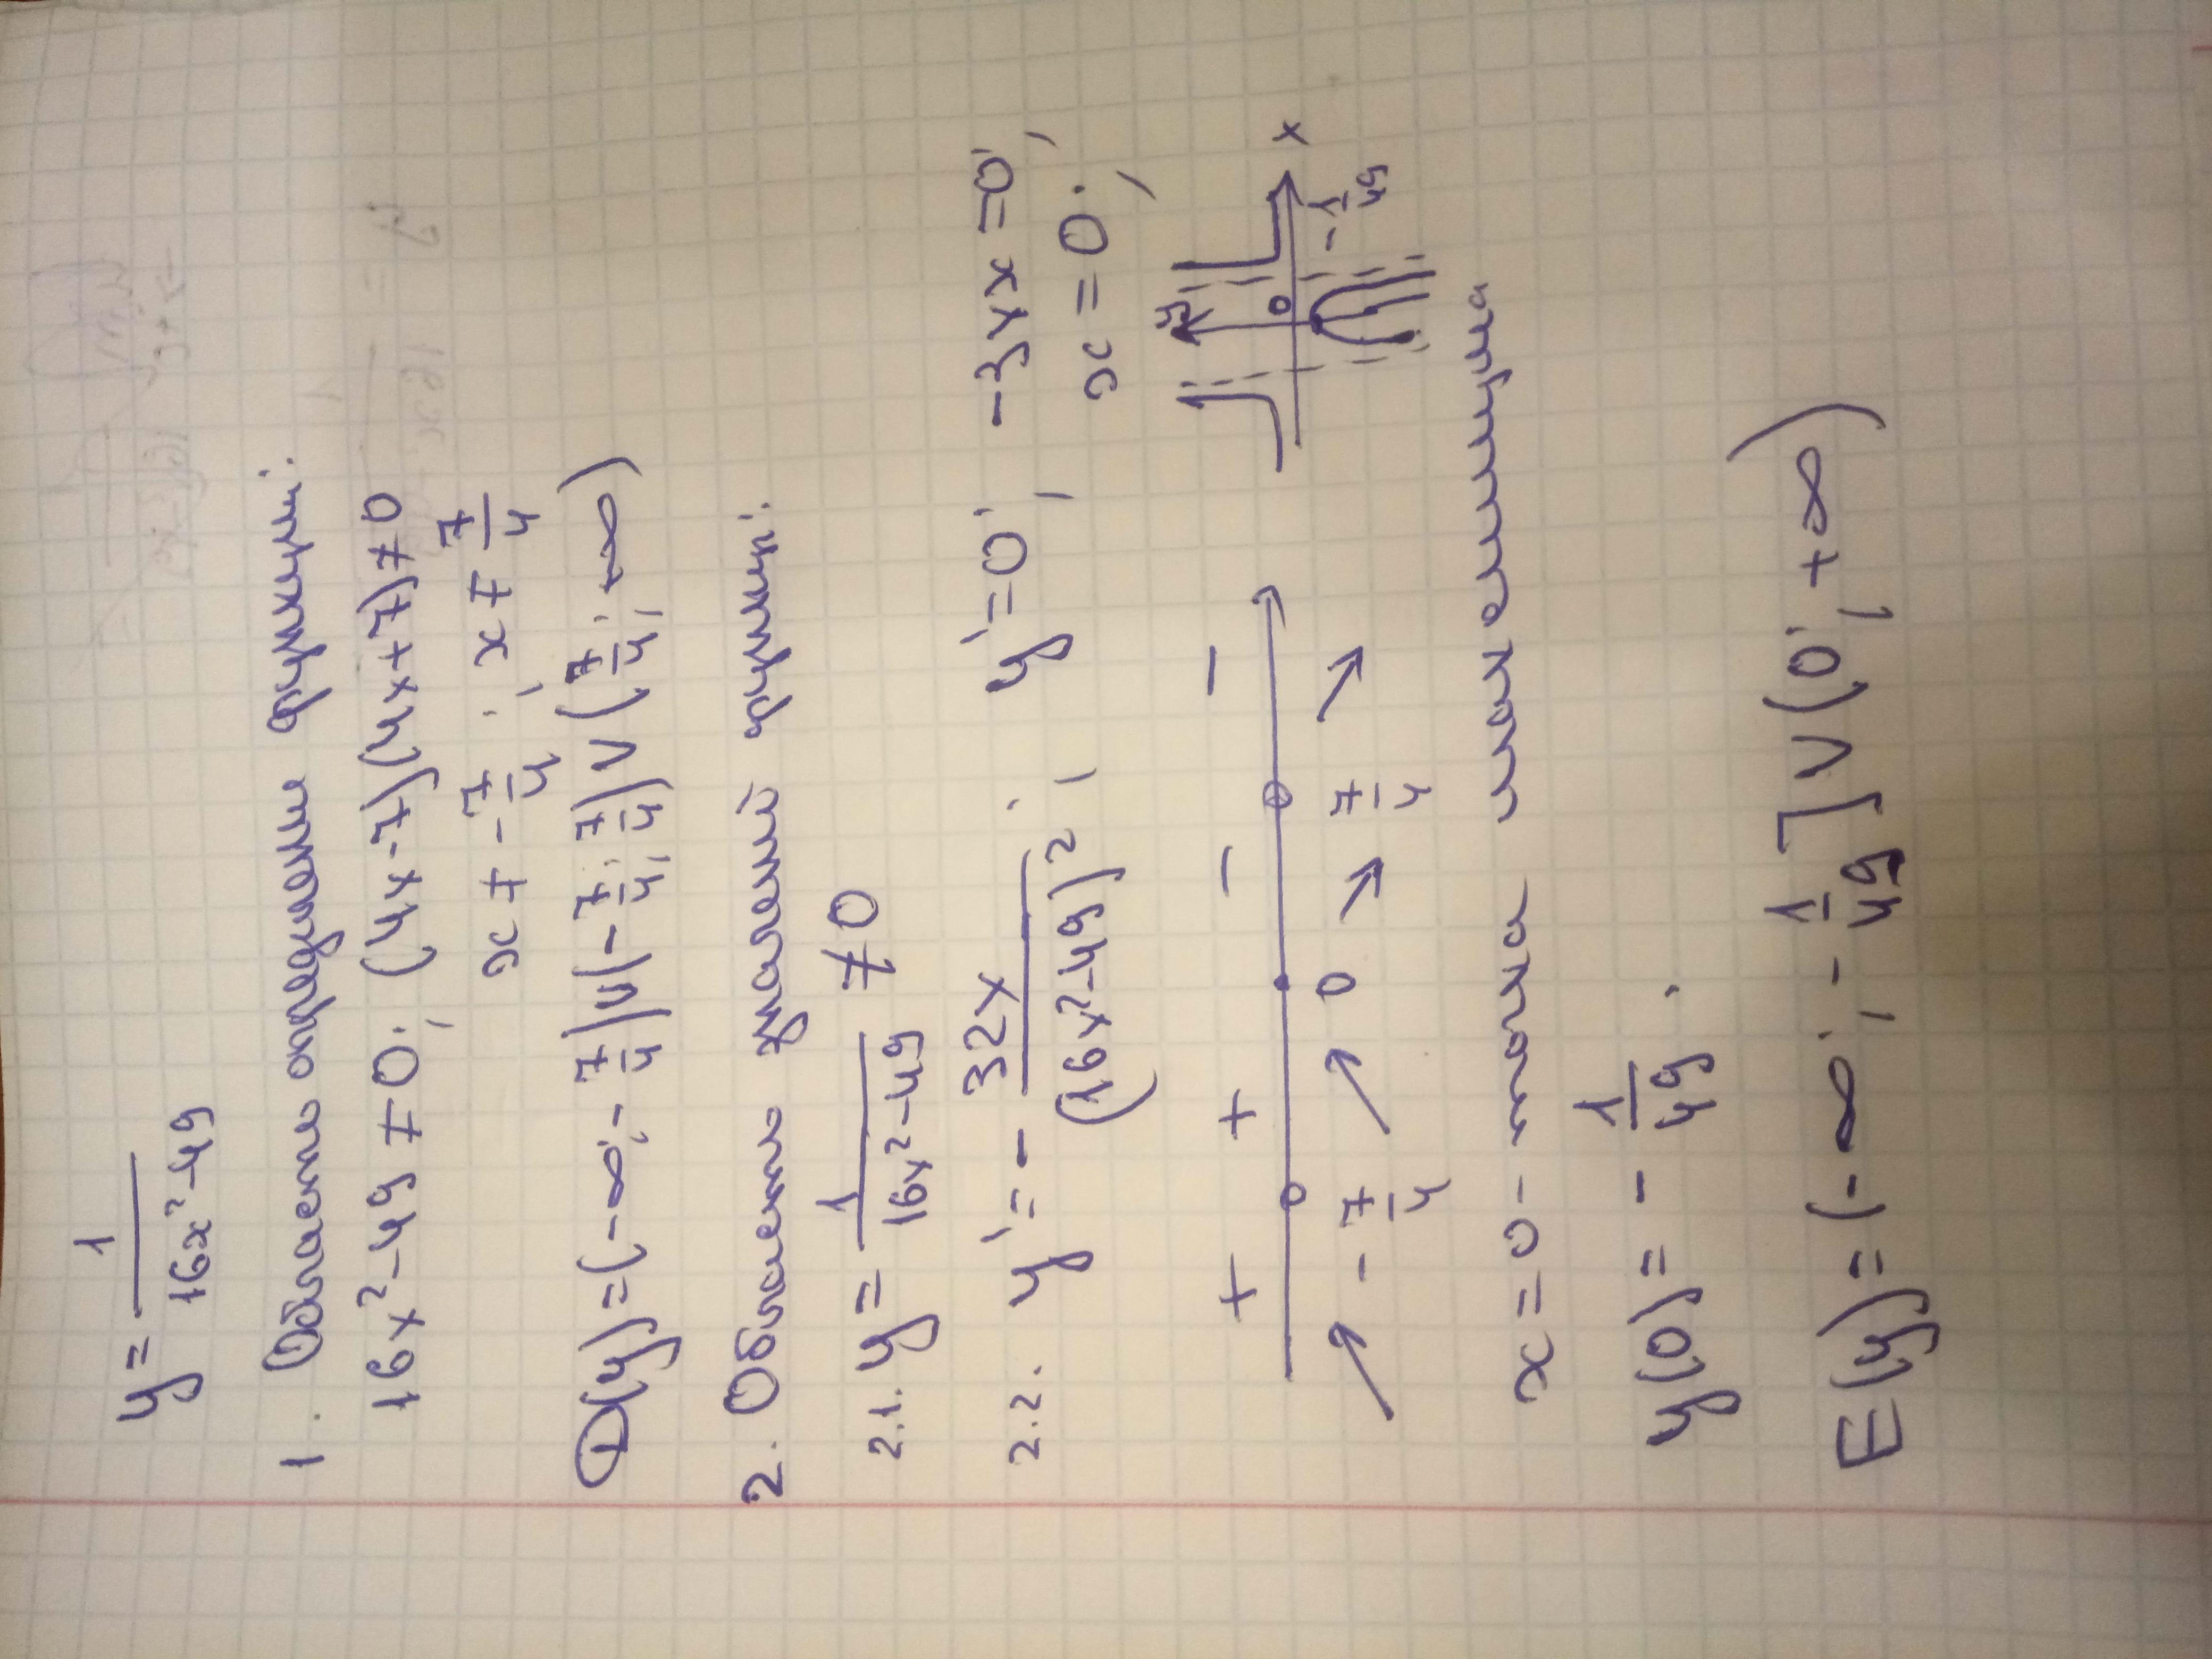 y = 1/(16x²-49)
1. Область определения функции:
16x²-49 ≠ 0; (4x-7)(4x+7) ≠ 0
x ≠ -7/4; x ≠ 7/4
D(y) = (-∞; -7/4) ∪ (-7/4; 7/4) ∪ (7/4; +∞)
2. Область значений функции:
2.1. y = 1/(16x²-49) ≠ 0
2.2. y' = - 32x/(16x²-49)²; y' = 0; -32x = 0;
x = 0;
+ + - -
-7/4 0 7/4
y 0 x -1/49
x = 0 - точка максимума
y(0) = - 1/49.
E(y) = (-∞; -1/49] ∪ (0; +∞)